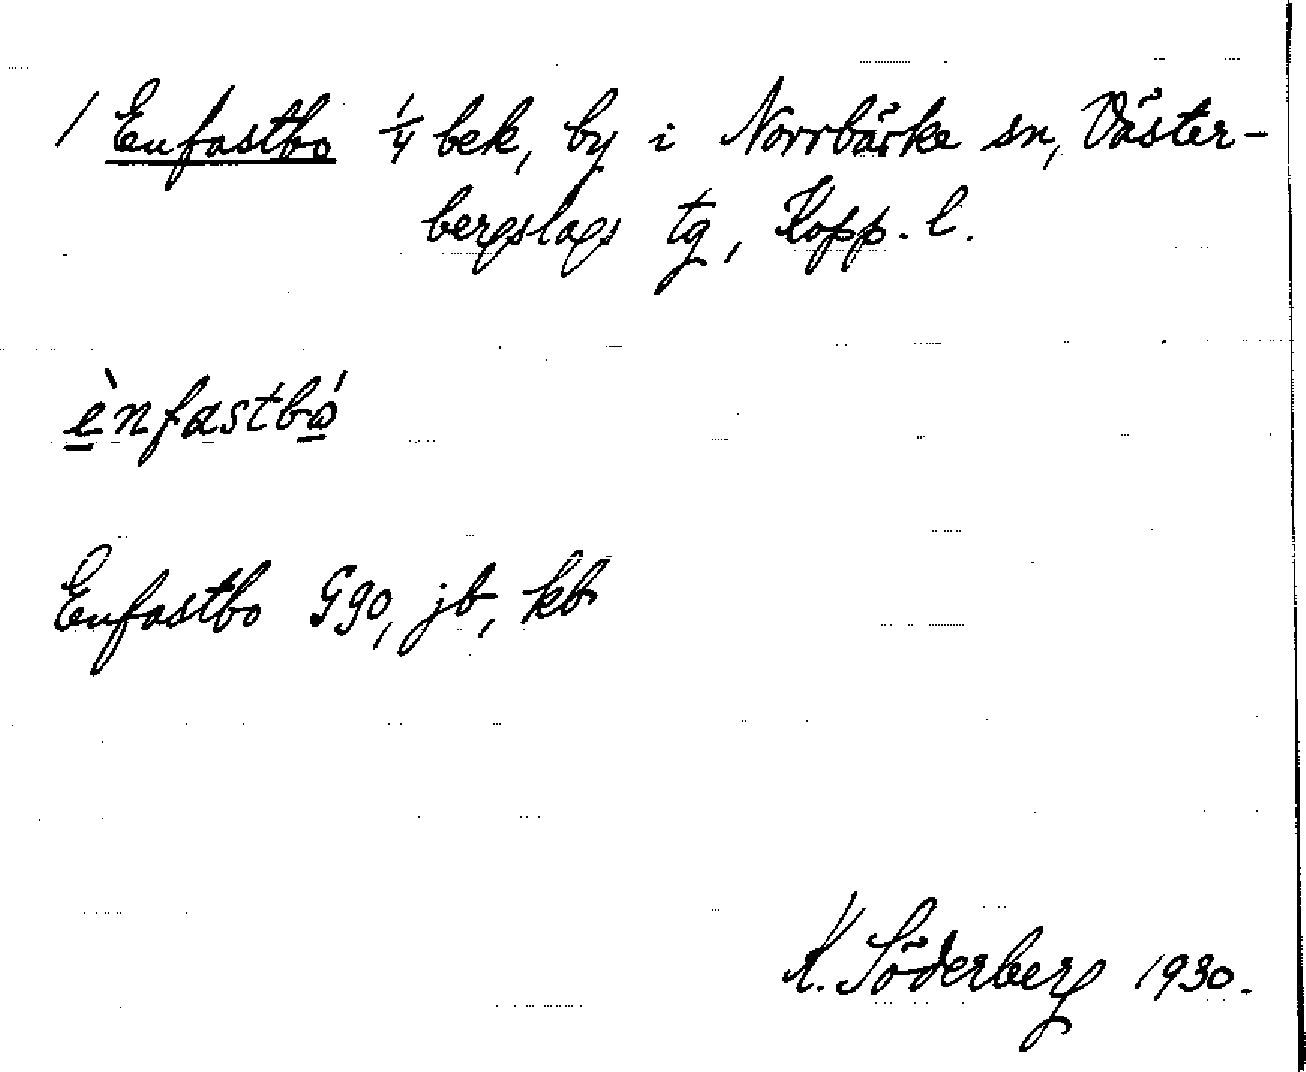 / Enfastbo 1/4 bek, by i Norrbärke sn, Väster-
bergslags tg, Kopp. l.
ènfastbó
Enfastbo G90, jb, kb
K. Söderberg 1930.